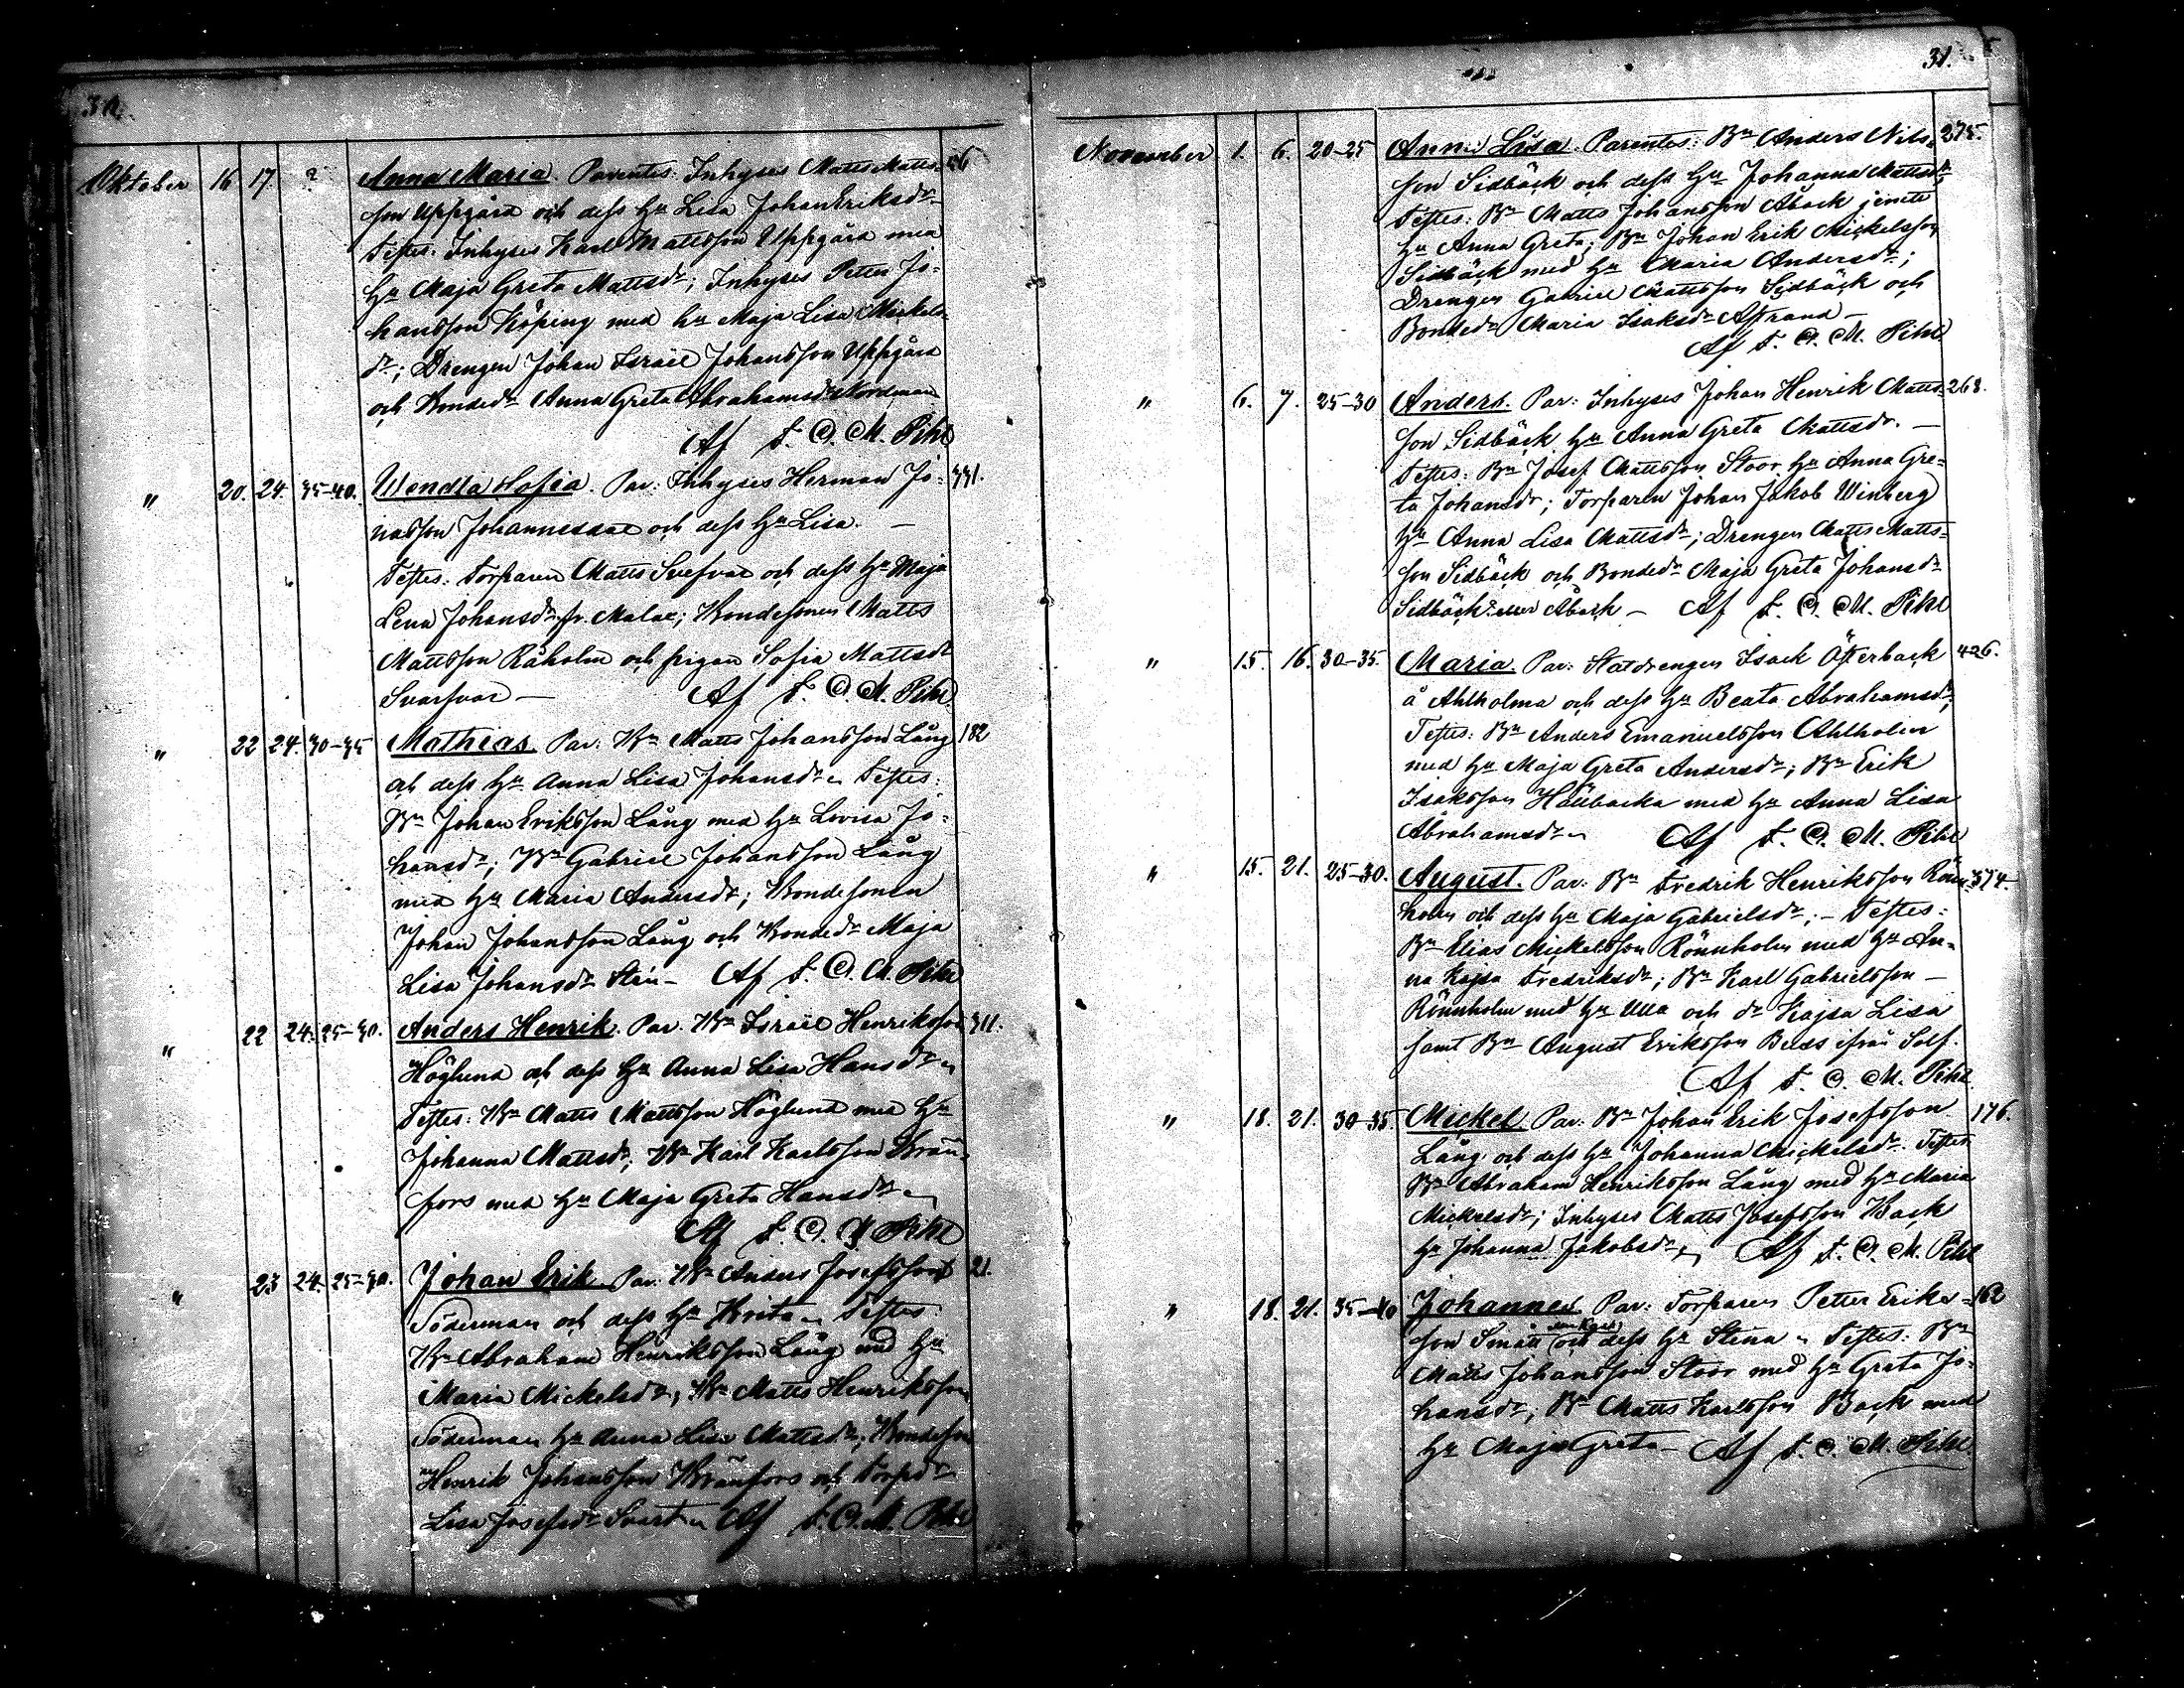 30.
Oktober 16 17. ? Anna Maria. Parentes: Inhyses Matts Matts- 56
son Uppgård och dess hu Lisa JohanEriksdr
Testes: Inhyses Karl Mattsson Uppgård med
hu Maja Greta Mattsdr; Inhyses Petter Jo-
hansson Köping med hu Maja Lisa Mickels-
dr; Drengen Johan Israel Johansson Uppgård
och Bondedr Anna Greta Abrahamsdr Nordman
Af F. O. M. Pihl
" 20. 24. 35-40. Wendla Sofia. Par: Inhyses Herman Jo- 331.
nasson Johannesdal och dess hu Lisa. —
Testes: Torparen Matts och dess hu Maja
Lena Johansdr fr. Malax; Bondesonen Matts
Mattsson Råholm och pigan Sofia Mattsdr
Svarfvar — Af F. O. M. Pihl.
" 22 24. 30-35 Mathias. Par: Bn Matts Johansson Lång 182
och dess hu Anna Lisa Johansdr Testes:
Bn Johan Eriksson Lång med hu Lovisa Jo-
hansdr; Bn Gabriel Johansson Lång
med hu Maria Andersdr; Bondesonen
Johan Johansson Lång och Bondedr Maja
Lisa Johansdr — Af F. O. M. Pihl
" 22 24. 25-30. Anders Henrik. Par. Bn Israel Henriksson 311.
Höglund och dess hu Anna Lisa Hansdr
Testes: Bn Matts Mattsson Höglund med hu
Johanna Mattsdr; Bn Karl Karlsson Brän-
fors med hu Maja Greta Hansdr
Af F. O. M. Pihl
" 23 24. 25-30. Johan Erik. Par: Bn Anders Josefsson 21.
Söderman och dess hu Brita Testes:
Bn Abraham Henriksson Lång med hu
Maria Mickelsdr; Bn Matts Henriksson
Söderman hu Anna Lisa Mattsdr; Bondeson
Henrik Johansson Bränfors och Torpdr
Lisa Josefsdr Svart Af F. O. M. Pihl
31.
November 1. 6. 20-25 Anna Lisa. Parentes: Bn Anders Nils- 275.
son Sidbäck och dess hu Johanna Mattsdr
Testes: Bn Matts Johansson Åback jemte
hu Anna Greta; Bn Johan Erik Mickelsson
Sidbäck med hu Maria Andersdr;
Drengen Gabriel Mattsson Sidbäck och
Bondedr Maria Isaksdr Åstrand —
Af F. O. M. Pihl
" 6. 7. 25-30 Anders. Par: Inhyses Johan Henrik Matts- 263.
son Sidbäck hu Anna Greta Mattsdr. —
Testes: Bn Josef Mattsson Stoor hu Anna Gre-
ta Johansdr; Torparen Johan Jakob Winberg
hu Anna Lisa Mattsdr; Drengen Matts Matts-
son Sidbäck och Bondedr Maja Greta Johansdr
Sidbäck eller Åback — Af F. O. M. Pihl
" 15. 16. 30-35. Maria. Par: Statdrengen Isack Österback 426.
å Ahlholma och dess hu Beata Abrahamsdr;
Testes: Bn Anders Emanuelsson Ahlholm
med hu Maja Greta Andersdr; Bn Erik
Isaksson Hällbacka med hu Anna Lisa
Abrahamsdr Af F. O. M. Pihl
" 15. 21. 25-30. August. Par: Bn Fredrik Henriksson Rönn- 374.
holm och dess hu Maja Gabrielsdr; — Testes:
Bn Elias Mickelsson Rönnholm med hu An-
na Kajsa Fredriksdr; Bn Karl Gabrielsson —
Rönnholm med hu Ulla och dr Kajsa Lisa
samt Bn August Eriksson ifrån Solf.
Af F. O. M. Pihl
" 18. 21. 30-35. Mickel. Par: Bn Johan Erik Josefsson 176.
Lång och dess hu Johanna Mickelsdr. Testes
Bn Abraham Henriksson Lång med hu Maria
Mickelsdr; Inhyses Matts Josefsson Back
hu Johanna Jakobsdr Af F. O. M. Pihl
" 18. 21. 35-40 Johannes Par: Torparen Petter Eriks- 162
son Smått och dess hu Stina Testes: Bn
Matts Johansson Stoor med hu Greta Jo-
hansdr; Bn Matts Karlsson Back med
hu Maja Greta — Af F. O. M. Pihl